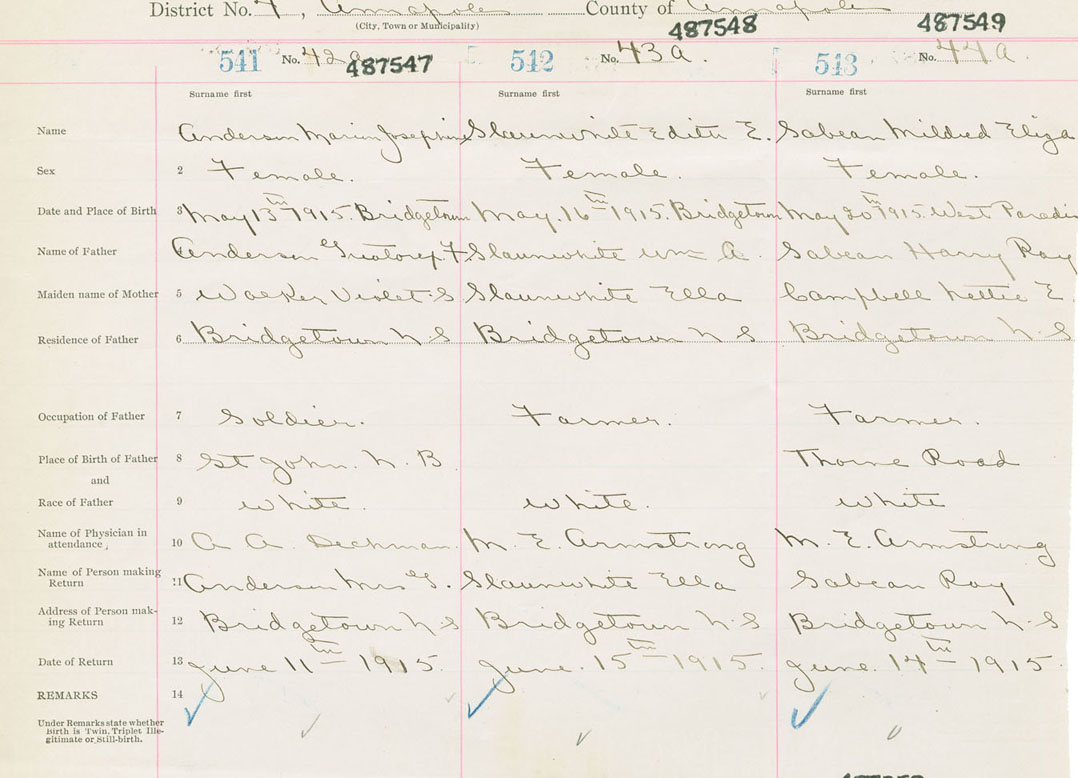 District No. 7, Annapolis County of Annapolis
(City, Town or Municipality)
487548 487549
541 No. 42a 487547 542 No. 43a. 543 No. 44a
Surname first Surname first Surname first
Name Anderson Marion Josephine Slaunwhite Edith E. Sabean Mildred Eliza
Sex 2 Female. Female. Female.
Date and Place of Birth 3 May 13th 1915. Bridgetown May. 16th 1915. Bridgetown May 20th 1915. West Paradis
Name of Father 4 Anderson F Slaunwhite Wm A. Sabean Harry Ray
Maiden name of Mother 5 Walker Violet S Slaunwhite Ella Campbell Nettie E.
Residence of Father 6 Bridgetown N.S Bridgetown N S Bridgetown N.S
Occupation of Father 7 Soldier. Farmer. Farmer.
Place of Birth of Father 8 St John. N. B Thorne Road
and
Race of Father 9 White. White. White
Name of Physician in
attendance, 10 A A. Dechman. M. E. Armstrong M. E. Armstrong
Name of Person making
Return 11 Anderson Mrs G. Slaunwhite Ella Sabean Ray
Address of Person mak-
ing Return 12 Bridgetown N.S Bridgetown N.S Bridgetown N.S
Date of Return 13 June 11th 1915. June. 15th 1915. June. 14th 1915.
REMARKS 14
Under Remarks state whether
Birth is Twin, Triplet Ille-
gitimate or Still-birth.